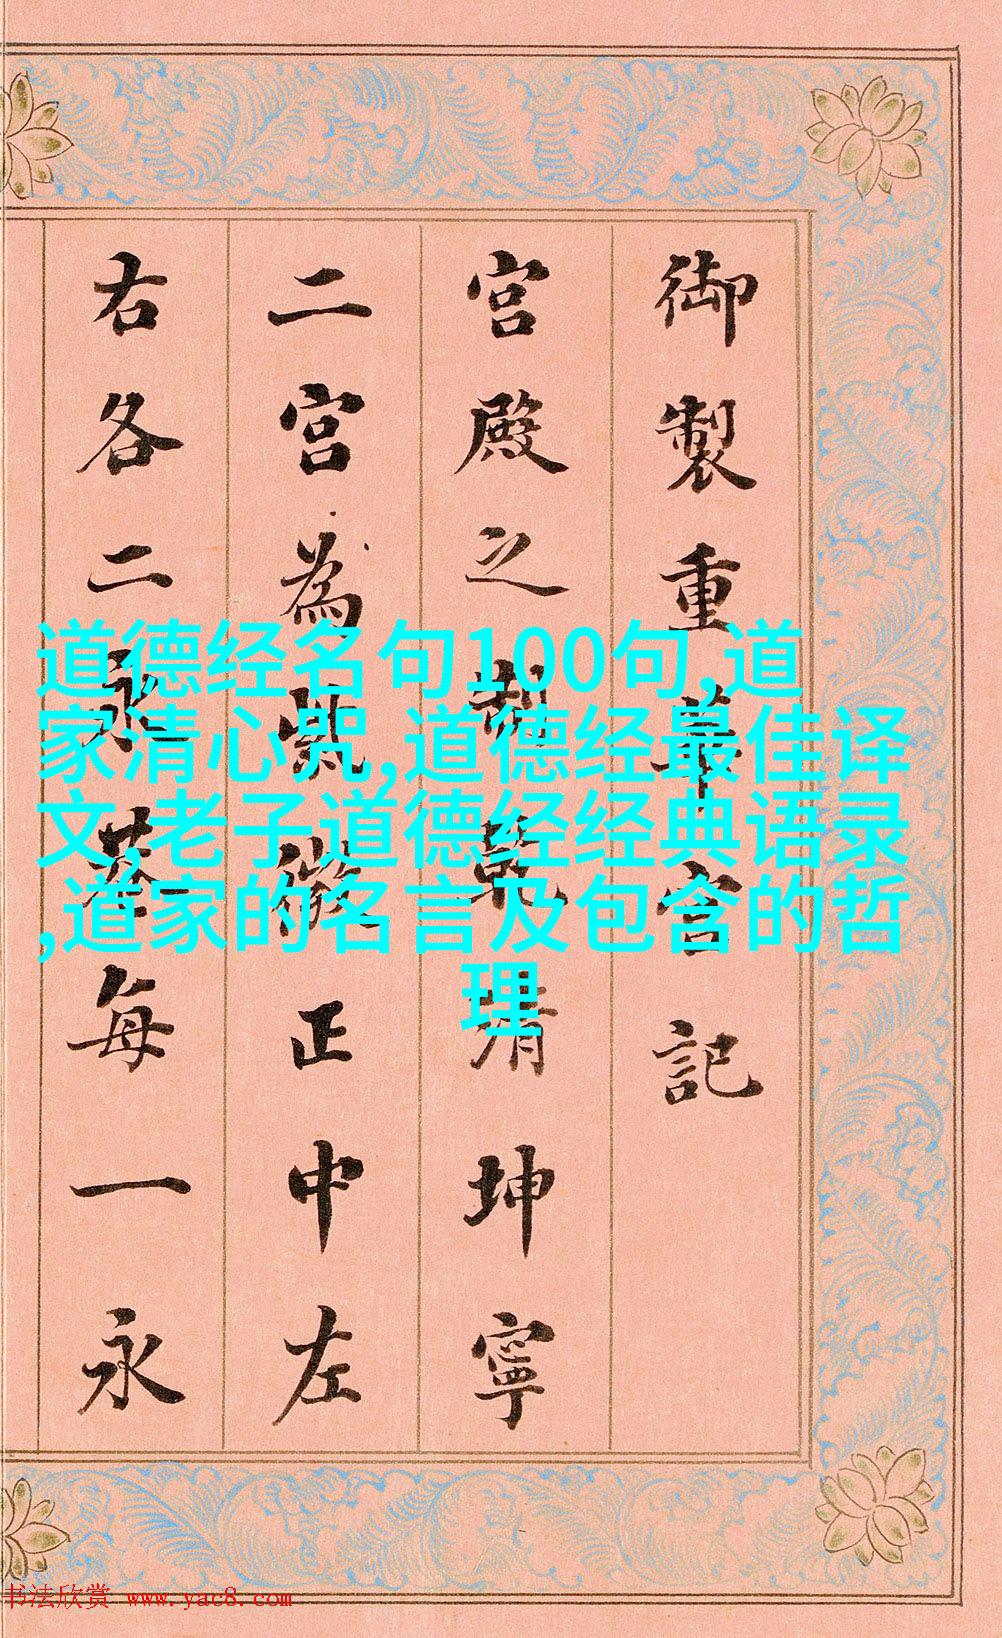 御製重華宮記
宮殿之制乾清坤寧
二宮為正中左
右各二永巷每一永
道德经名句100句,道
家清心咒,道德经最佳译
文,老子道德经经典语录
,道家的名言及包含的哲
理
书法欣赏 www.yac8.com